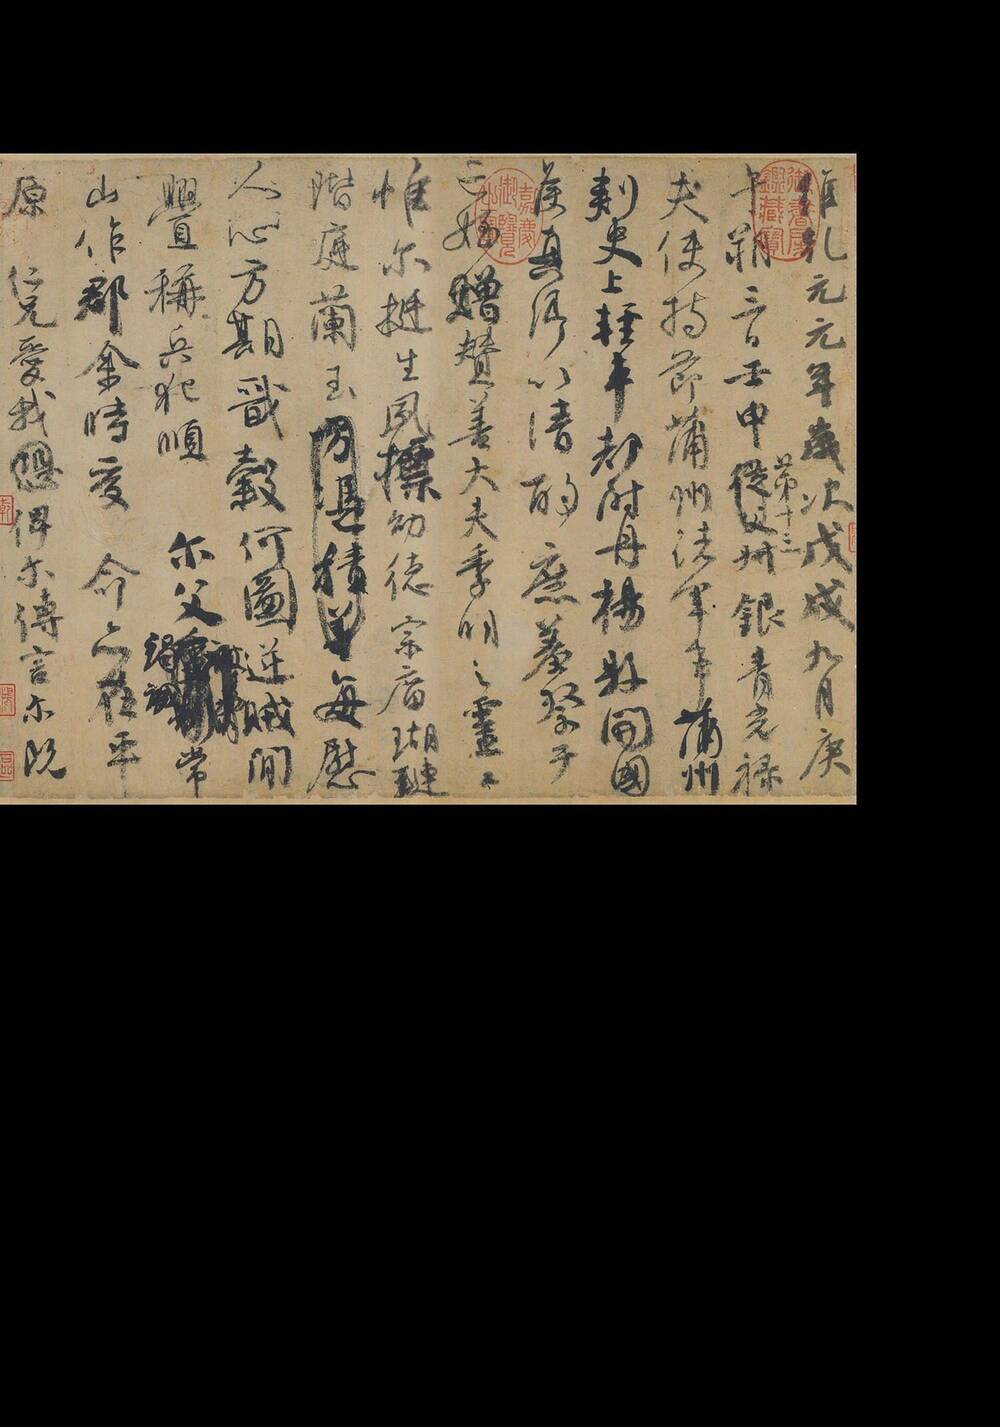 維乾元元年歲次戊戌九月庚
午朔三日壬申第十三從父叔銀青光祿
夫使持節蒲州諸軍事蒲州
刺史上輕車都尉丹楊縣開國
侯真卿以清酌庶羞祭于
亡姪贈贊善大夫季明之靈曰
惟尔挺生夙標幼德宗廟瑚璉
階庭蘭玉方憑積善每慰
人心方期戩穀何圖逆賊閒
釁稱兵犯順尔父竭誠常
山作郡余時受命亦在平
原仁兄愛我恐俾尔傳言尔既
嘉慶御覽之寶